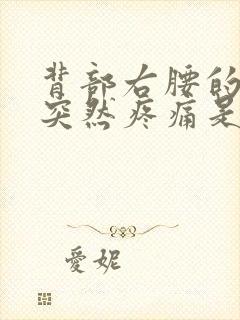 背部右腰的
突然疼痛是
愛妮